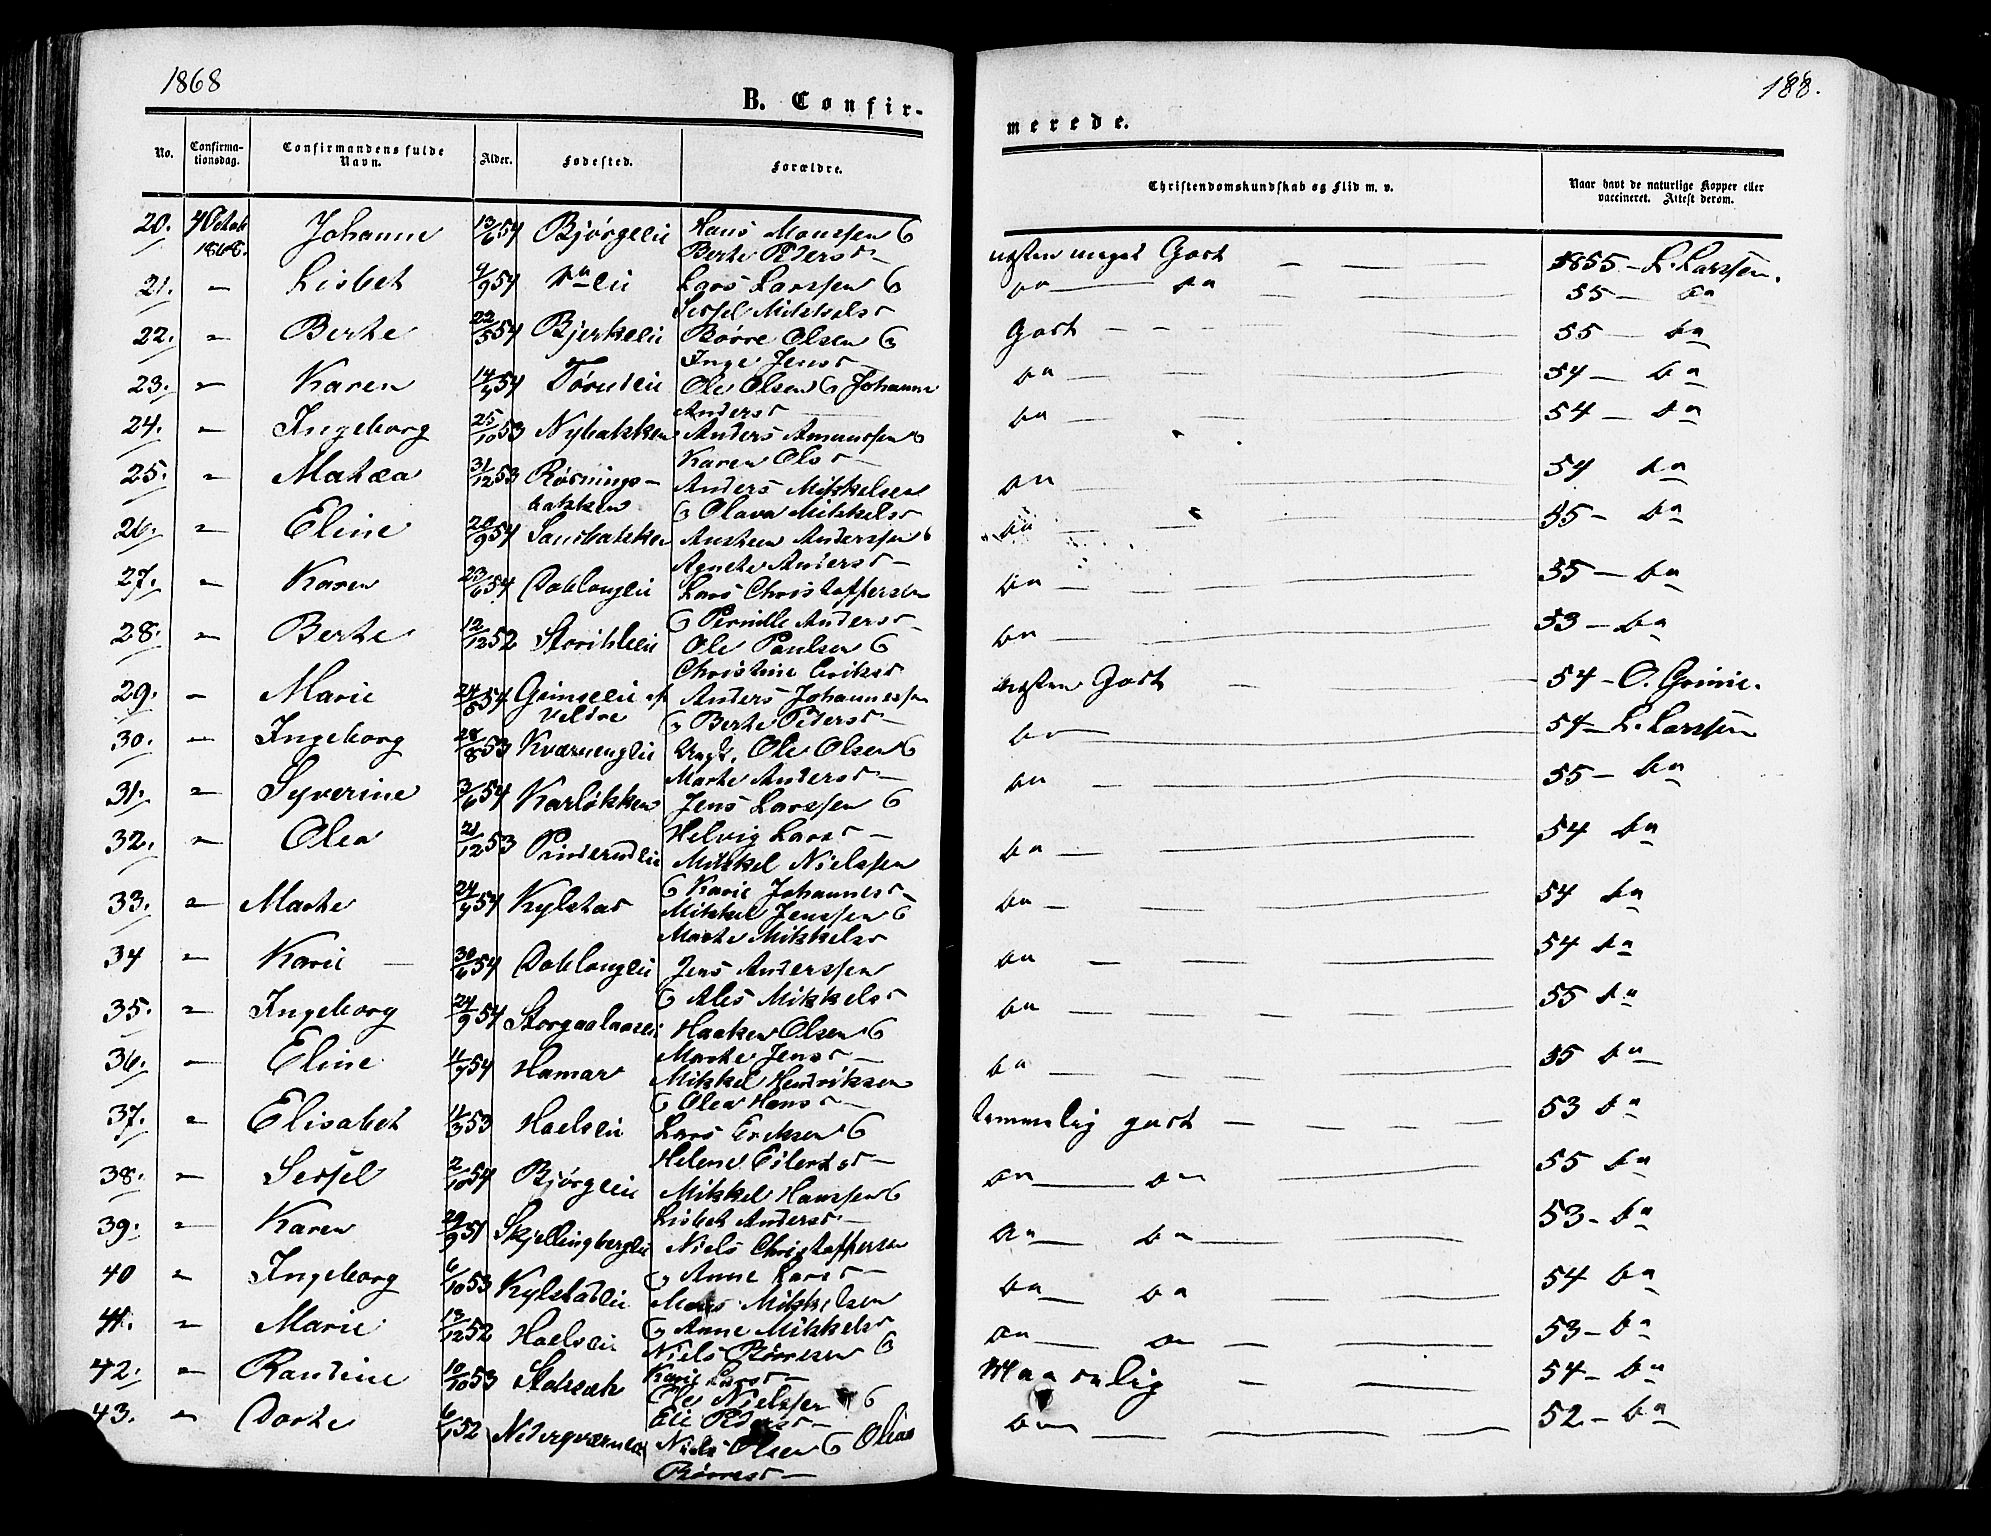 1868
188.
B. Confir-
merede.
No.
Confirma-
tionsdag.
Confirmandens fulde
Navn.
Alder.
Fødested.
Forældre.
Christendomskundskab og Flid m. v.
Naar havt de naturlige Kopper eller
vaccineret. Attest derom.
20. 4 Octob 1868. Johanne 13/6 54 Bjørgeeie Hans Monssen &
Berte Peders - næsten meget Godt 1855 - L. Larssen.
21. " Lisbet 9/9 54 Lars Larssen &
Sessel Mikkels 55 - da
22. " Berthe 22/5 54 Bjerkeeie Børre Olsen &
Inge Jens - Godt 55 - da
23. " Karen 14/4 54 Ole Olsen & Johanne
Anders da 54 - da
24. " Ingeborg 25/10 53 Nybakken Anders Amunssen &
Karen Ols - da 54 - da
25. " Matea 31/12 53 Røsnings-
bakken Anders Mikkelsen
& Olava Mikkels da 54 da
26. " Eline 20/9 54 Austeen Anderssen &
Agnethe Anders - da 55 - da
27. " Karen 23/6 54 Doblougeie Lars Christoffersen
& Pernille Anders - da 55 - da
28. " Berte 12/12 52 Ole Paulsen &
Christine Eriks da 53 - da
29. " Marie 54 Veldre Anders Johannessen
& Berte Peders - næsten Godt 54 - O. Grinie.
30. " Ingeborg 28/8 53 Kværnengeie Ungk. Ole Olsen &
Marte Anders - da 54 - L. Larssen
31. " Syverine 3/6 54 Karløkken Jens Larssen &
Helvig Lars - da 55 - da
32. " Olea 21/12 53 Mikkel Nielssen
& Karie Johannes - da 54 da
33. " Marthe 24/4 54 Kylstad Mikkel Jenssen &
Marte Mikkels da 54 da
34 " Karie 30/6 54 Doblougeie Jens Anderssen
& Ales Mikkels da 54 da
35. " Ingeborg 24/9 54 Haaken Olsen &
Marthe Jens - da 55 da
36. " Eline 11/7 54 Hamar Mikkel Hendriksen
& Olea Hans - da 55 da
37. " Elisabet 11/3 53 Hoelseie Lars Eriksen &
Helene Eilerds - temmelig godt 53 da
38. " Sessel 2/10 54 Bjørgeeie Mikkel Hanssen &
Lisbet Anders - da da 55 da
39. " Karen 29/9 51 Skjellingbergeie Niels Christoffersen
& Anne Lars - da da 53 - da
40 " Ingeborg 6/10 53 Kylstadeie Mons Mikkelsen
& Anne Mikkels da da 54 da
41. " Marie 13/12 52 Hoelseie Niels Børresen &
Karie Lars - da da 53 - da
42. " Randine 10/10 53 Ole Nielssen &
Elie Peders - Maadelig 54 - da
43. " Dorte 6/1 52 Niels Olsen & Olea
Børres - da 52 - da